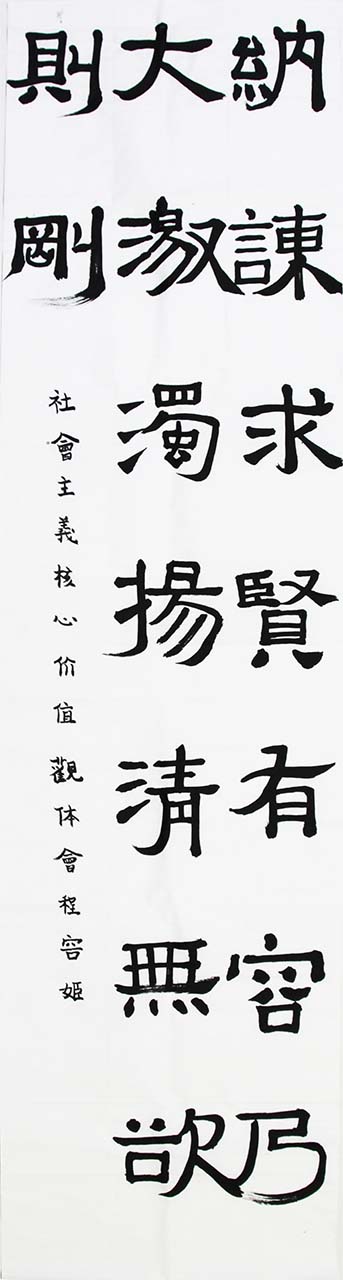 納諫求賢有容乃
大激濁揚清無欲
則剛
社會主義核心价值觀体會程容姬